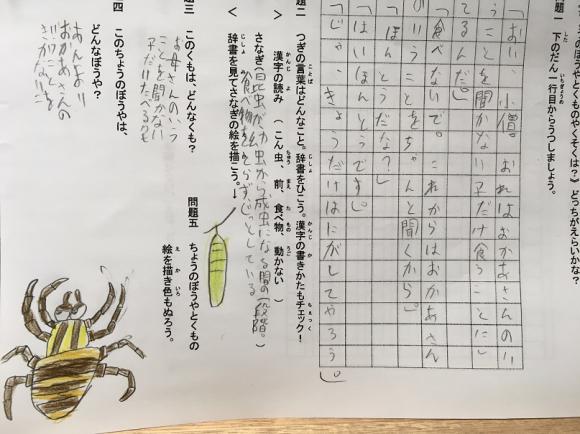 のぼうやとくものやくそくは?)どっちがえらいかな?
問題一 下のだん一行目からうつしましょう。
「おい、小僧。おれはおかあさんのい
うことを聞かない子だけ食うことにし
てるんだ。」
「食べないで。これからはおかあさん
のいうことをちゃんと聞くから。」
「ほんとうだな?」
「はい、ほんとうです。」
「じゃ、きょうだけはにがしてやろう。」
つぎの言葉はどんなこと。辞書をひこう。漢字の書きかたもチェック!
漢字の読み (こん虫、前、食べ物、動かない )
さなぎ(昆虫が幼虫から成虫になる間の一段階。)
食べ物をとらず、じっとしている
辞書を見てさなぎの絵を描こう。↓
問題五 ちょうのぼうやとくもの
絵を描き色もぬろう。
三 このくもは、どんなくも?
お母さんのいう
ことを聞かない
子だけたべるくも
四 このちょうのぼうやは、
どんなぼうや?
おかあさんの